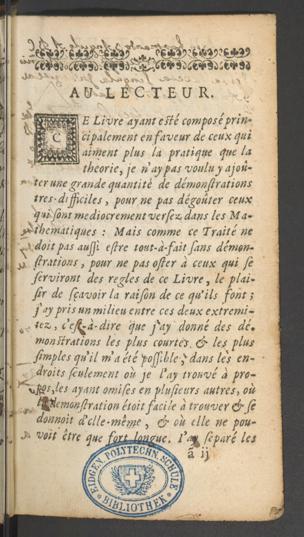 AU LECTEUR.
CE Livre ayant esté composé prin-
cipalement en faveur de ceux qui
aiment plus la pratique que la
theorie, je n'ay pas voulu y ajoû-
ter une grande quantité de démonstrations
tres-difficiles, pour ne pas dégoûter ceux
qui sont mediocrement versez dans les Ma-
thématiques : Mais comme ce Traité ne
doit pas aussi estre tout-à-fait sans démon-
strations, pour ne pas oster à ceux qui se
serviront des regles de ce Livre, le plai-
sir de sçavoir la raison de ce qu'ils font ;
j'ay pris un milieu entre ces deux extremi-
tez, c'est-à-dire que j'ay donné des dé-
monstrations les plus courtes & les plus
simples qu'il m'a été possible, dans les en-
droits seulement où je l'ay trouvé à pro-
pos, les ayant omises en plusieurs autres, où
la démonstration étoit facile à trouver & se
donnoit d'elle-même, & où elle ne pou-
voit être que fort longue. J'ay separé les
ã ij
EIDGEN. POLYTECHN. SCHULE
BIBLIOTHEK